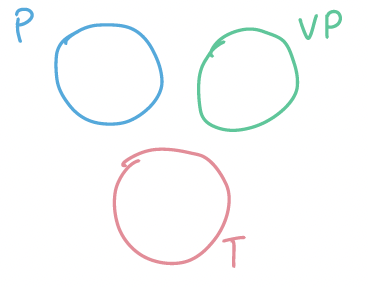 P
VP
T